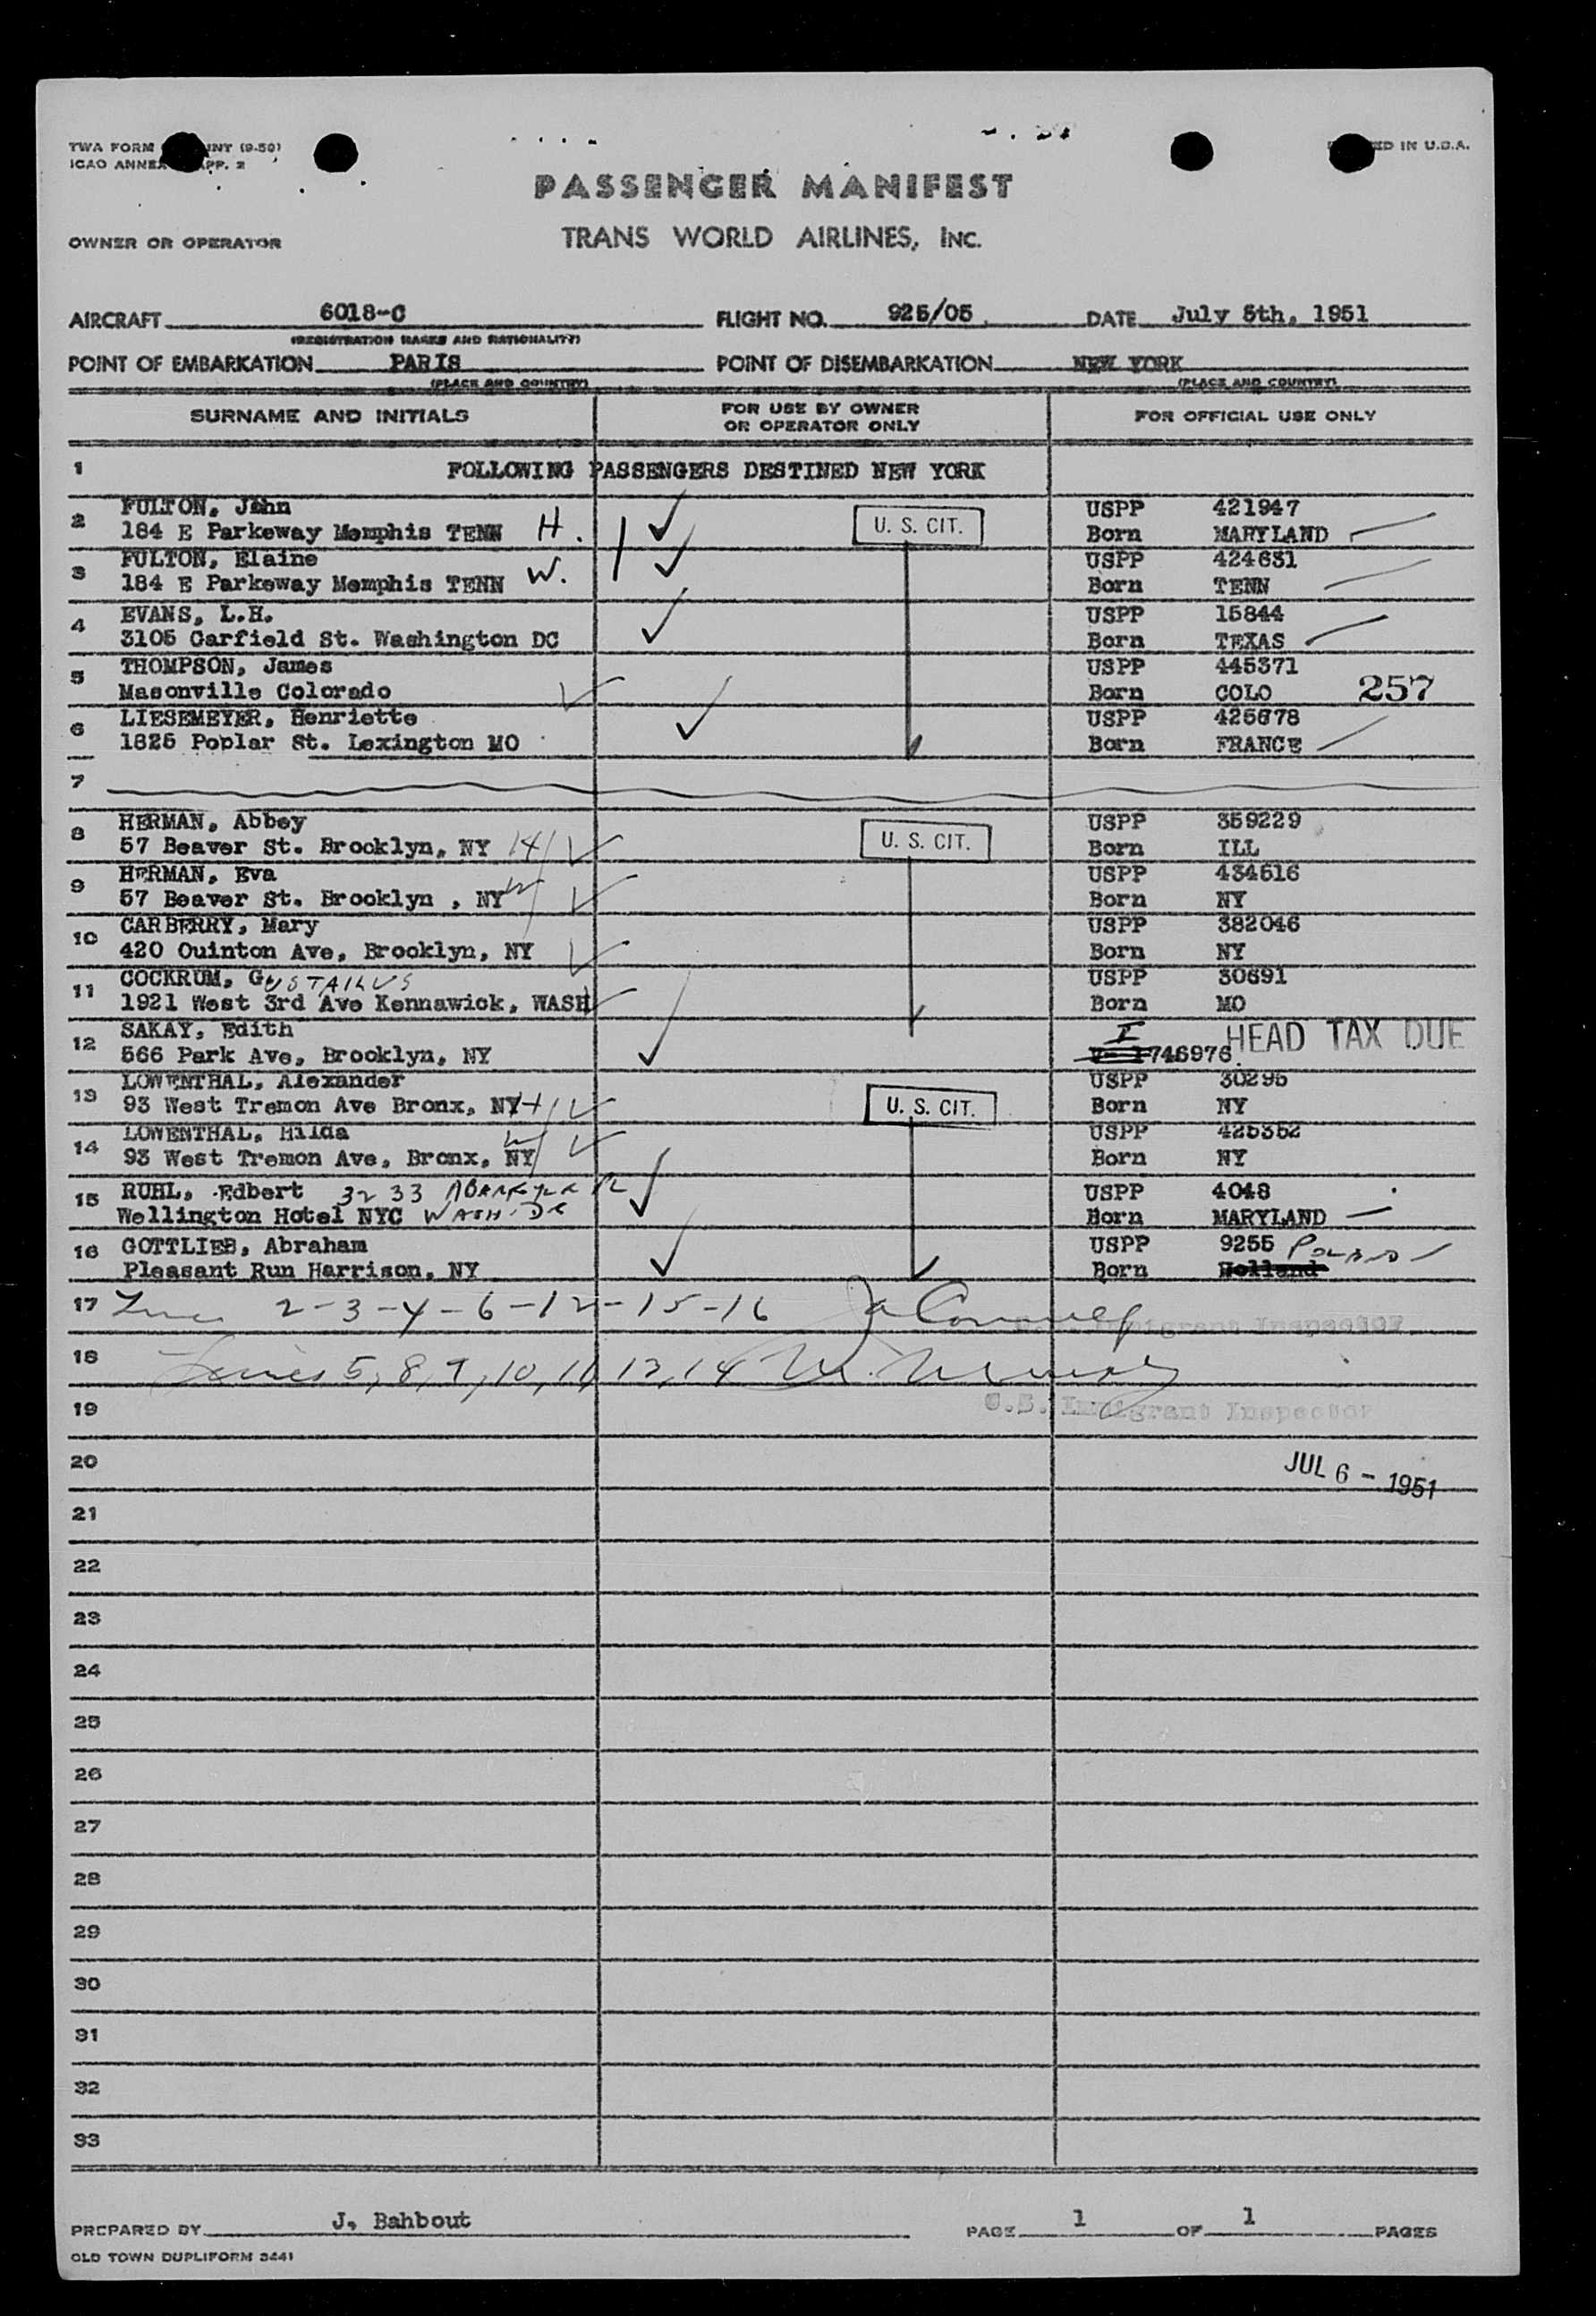 TWA FORM INT (9-50)
ICAO ANNEX APP. 2
ED IN U.S.A.
PASSENGER MANIFEST
OWNER OR OPERATOR
TRANS WORLD AIRLINES, INC.
AIRCRAFT 6018-C FLIGHT NO. 925/05 DATE July 5th, 1951
(REGISTRATION MARKS AND NATIONALITY)
POINT OF EMBARKATION PARIS POINT OF DISEMBARKATION NEW YORK
(PLACE AND COUNTRY) (PLACE AND COUNTRY)
SURNAME AND INITIALS FOR USE BY OWNER OR OPERATOR ONLY FOR OFFICIAL USE ONLY
1 FOLLOWING PASSENGERS DESTINED NEW YORK
2 FULTON, John USPP 421947
184 E Parkeway Memphis TENN H. U. S. CIT. Born MARYLAND
3 FULTON, Elaine USPP 424631
184 E Parkeway Memphis TENN W. Born TENN
4 EVANS, L.H. USPP 15844
3105 Garfield St. Washington DC Born TEXAS
5 THOMPSON, James USPP 445371
Masonville Colorado Born COLO 257
6 LIESEMEYER, Henriette USPP 425678
1825 Poplar St. Lexington MO Born FRANCE
7
8 HERMAN, Abbey USPP 359229
57 Beaver St. Brooklyn, NY H U. S. CIT. Born ILL
9 HERMAN, Eva USPP 434516
57 Beaver St. Brooklyn , NY W Born NY
10 CARBERRY, Mary USPP 382046
420 Ouinton Ave, Brooklyn, NY Born NY
11 COCKRUM, G. USPP 30691
1921 West 3rd Ave Kennawick, WASH Born MO
12 SAKAY, Edith I HEAD TAX DUE
566 Park Ave, Brooklyn, NY 746976
13 LOWENTHAL, Alexander USPP 30295
93 West Tremon Ave Bronx, NY H U. S. CIT. Born NY
14 LOWENTHAL, Hilda USPP 425352
93 West Tremon Ave, Bronx, NY W Born NY
15 RUHL, Edbert 3233 USPP 4048
Wellington Hotel NYC WASH. DC Born MARYLAND
16 GOTTLIEB, Abraham USPP 9255 POLAND
Pleasant Run Harrison, NY Born Holland
17 Lines 2-3-4-6-12-15-16
U.S. Immigrant Inspector
18 Lines 5, 8, 9, 10, 11, 13, 14
19 U.S. Immigrant Inspector
20 JUL 6 - 1951
21
22
23
24
25
26
27
28
29
30
31
32
33
PREPARED BY J. Bahbout PAGE 1 OF 1 PAGES
OLD TOWN DUPLIFORM 3441